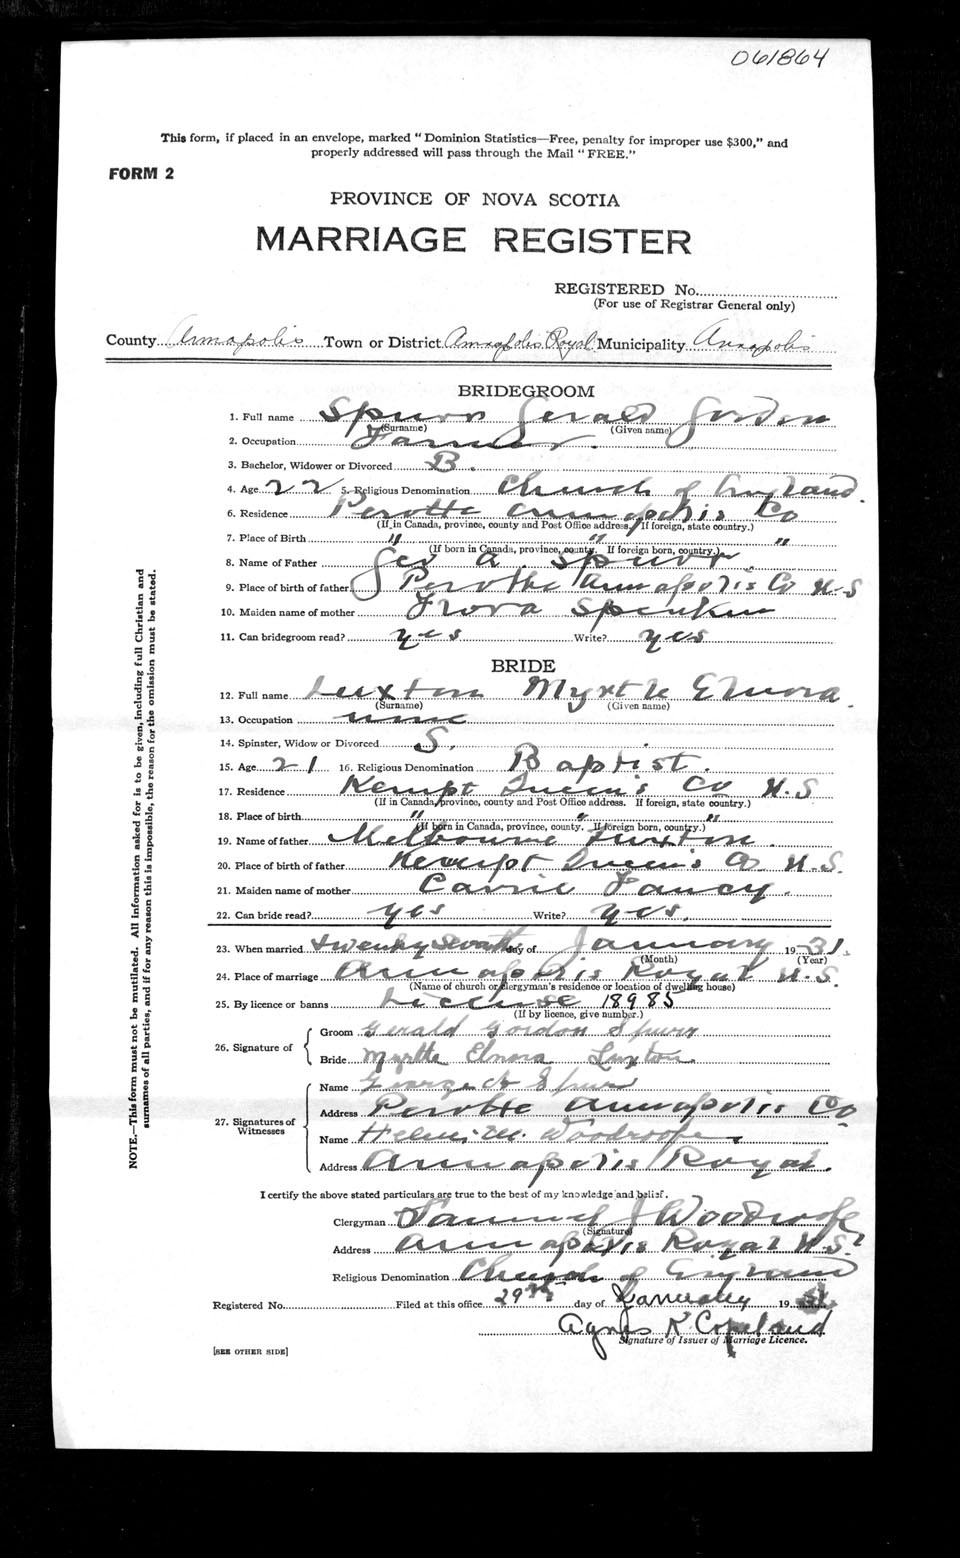 061864
This form, if placed in an envelope, marked "Dominion Statistics—Free, penalty for improper use $300," and
properly addressed will pass through the Mail "FREE."
FORM 2
PROVINCE OF NOVA SCOTIA
MARRIAGE REGISTER
REGISTERED No.
(For use of Registrar General only)
County Annapolis Town or District Annapolis Royal Municipality Annapolis
BRIDEGROOM
1. Full name Spurr Gerald Gordon
(Surname) (Given name)
2. Occupation Farmer.
3. Bachelor, Widower or Divorced B.
4. Age 22 5. Religious Denomination Church of England.
6. Residence Perotte Annapolis Co
(If in Canada, province, county and Post Office address. If foreign, state country.)
7. Place of Birth " " "
(If born in Canada, province, county. If foreign born, country.)
8. Name of Father Geo A. Spurr
9. Place of birth of father Perotte Annapolis Co N.S
10. Maiden name of mother
11. Can bridegroom read? yes Write? yes
BRIDE
12. Full name Luxton Myrtle Elnora
(Surname) (Given name)
13. Occupation none
14. Spinster, Widow or Divorced S.
15. Age 21 16. Religious Denomination Baptist.
17. Residence Kempt Queen's Co N.S
(If in Canada, province, county and Post Office address. If foreign, state country.)
18. Place of birth " " "
(If born in Canada, province, county. If foreign born, country.)
19. Name of father Melbourne Luxton.
20. Place of birth of father Kempt Queen's Co. N.S.
21. Maiden name of mother Carrie Lancy.
22. Can bride read? yes Write? yes.
23. When married twenty seventh day of January 1931.
(Month) (Year)
24. Place of marriage Annapolis Royal N.S.
(Name of church or clergyman's residence or location of dwelling house)
25. By licence or banns License 18985
(If by licence, give number.)
26. Signature of
Groom Gerald Gordon Spurr
Bride Myrtle Elnora Luxton
27. Signatures of Witnesses
Name George A Spurr
Address Perotte Annapolis Co
Name Helen M. Woodroofe
Address Annapolis Royal.
I certify the above stated particulars are true to the best of my knowledge and belief.
Clergyman Samuel J Woodroofe
(Signature)
Address Annapolis Royal N.S.
Religious Denomination Church of England
Registered No. Filed at this office 29th day of January 19 31
Agnes K. Copeland
Signature of Issuer of Marriage Licence.
[SEE OTHER SIDE]
NOTE.—This form must not be mutilated. All information asked for is to be given, including full Christian and
surnames of all parties, and if for any reason this is impossible, the reason for the omission must be stated.